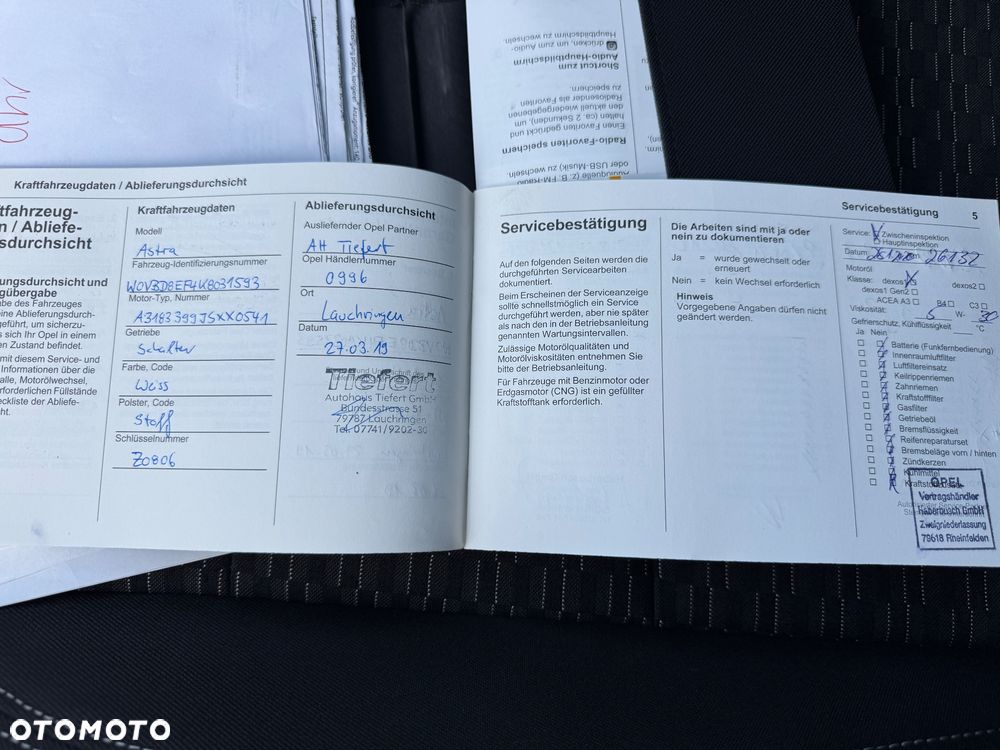 Uhr
Shortcut zum
Audio-Hauptbildschirm
drücken, um zum Audio-
Hauptbildschirm zu wechseln.
Radio-Favoriten speichern
Einen Favoriten gedrückt und
halten (ca. 2 Sekunden), um
den aktuell wiedergegebenen
Radiosender als Favoriten
zu speichern.
Audioquelle (z. B. FM-Radio
oder USB-Musik) zu wechseln.
Kraftfahrzeugdaten / Ablieferungsdurchsicht
tfahrzeug-
n / Abliefe-
sdurchsicht
ungsdurchsicht und
gübergabe
be des Fahrzeuges
eine Ablieferungsdurch-
geführt, um sicherzu-
s sich Ihr Opel in einem
n Zustand befindet.
mit diesem Service- und
Informationen über die
alle, Motorölwechsel,
erforderlichen Füllstände
eckliste der Abliefe-
ht.
Kraftfahrzeugdaten
Modell
Astra
Fahrzeug-Identifizierungsnummer
W0VBD8EF4K8031593
Motor-Typ, Nummer
Getriebe
Schalter
Farbe, Code
Weiss
Polster, Code
Stoff
Schlüsselnummer
Z0806
Ablieferungsdurchsicht
Ausliefernder Opel Partner
AH Tiefert
Opel Händlernummer
0996
Ort
Lauchringen
Datum
27.03.19
Tiefert
Autohaus Tiefert GmbH
Bundesstrasse 51
79787 Lauchringen
Tel. 07741/9202-30
Servicebestätigung
Auf den folgenden Seiten werden die
durchgeführten Servicearbeiten
dokumentiert.
Beim Erscheinen der Serviceanzeige
sollte schnellstmöglich ein Service
durchgeführt werden, aber nie später
als nach den in der Betriebsanleitung
genannten Wartungsintervallen.
Zulässige Motorölqualitäten und
Motorölviskositäten entnehmen Sie
bitte der Betriebsanleitung.
Für Fahrzeuge mit Benzinmotor oder
Erdgasmotor (CNG) ist ein gefüllter
Kraftstofftank erforderlich.
Die Arbeiten sind mit ja oder
nein zu dokumentieren
Ja = wurde gewechselt oder
erneuert
Nein = kein Wechsel erforderlich
Hinweis
Vorgegebene Angaben dürfen nicht
geändert werden.
Servicebestätigung 5
Service: Zwischeninspektion
Hauptinspektion
Datum 26132
Motoröl
Klasse: dexos1 dexos2
dexos1 Gen2
ACEA A3 B4 C3
Viskosität: 5 W- 30
Gefrierschutz, Kühlflüssigkeit °C
Ja Nein
Batterie (Funkfernbedienung)
Innenraumluftfilter
Luftfiltereinsatz
Keilrippenriemen
Zahnriemen
Kraftstofffilter
Gasfilter
Getriebeöl
Bremsflüssigkeit
Reifenreparaturset
Bremsbeläge vorn / hinten
Zündkerzen
Kühlmittel
OPEL
Vertragshändler
Haberbusch GmbH
Zweigniederlassung
79618 Rheinfelden
OTOMOTO